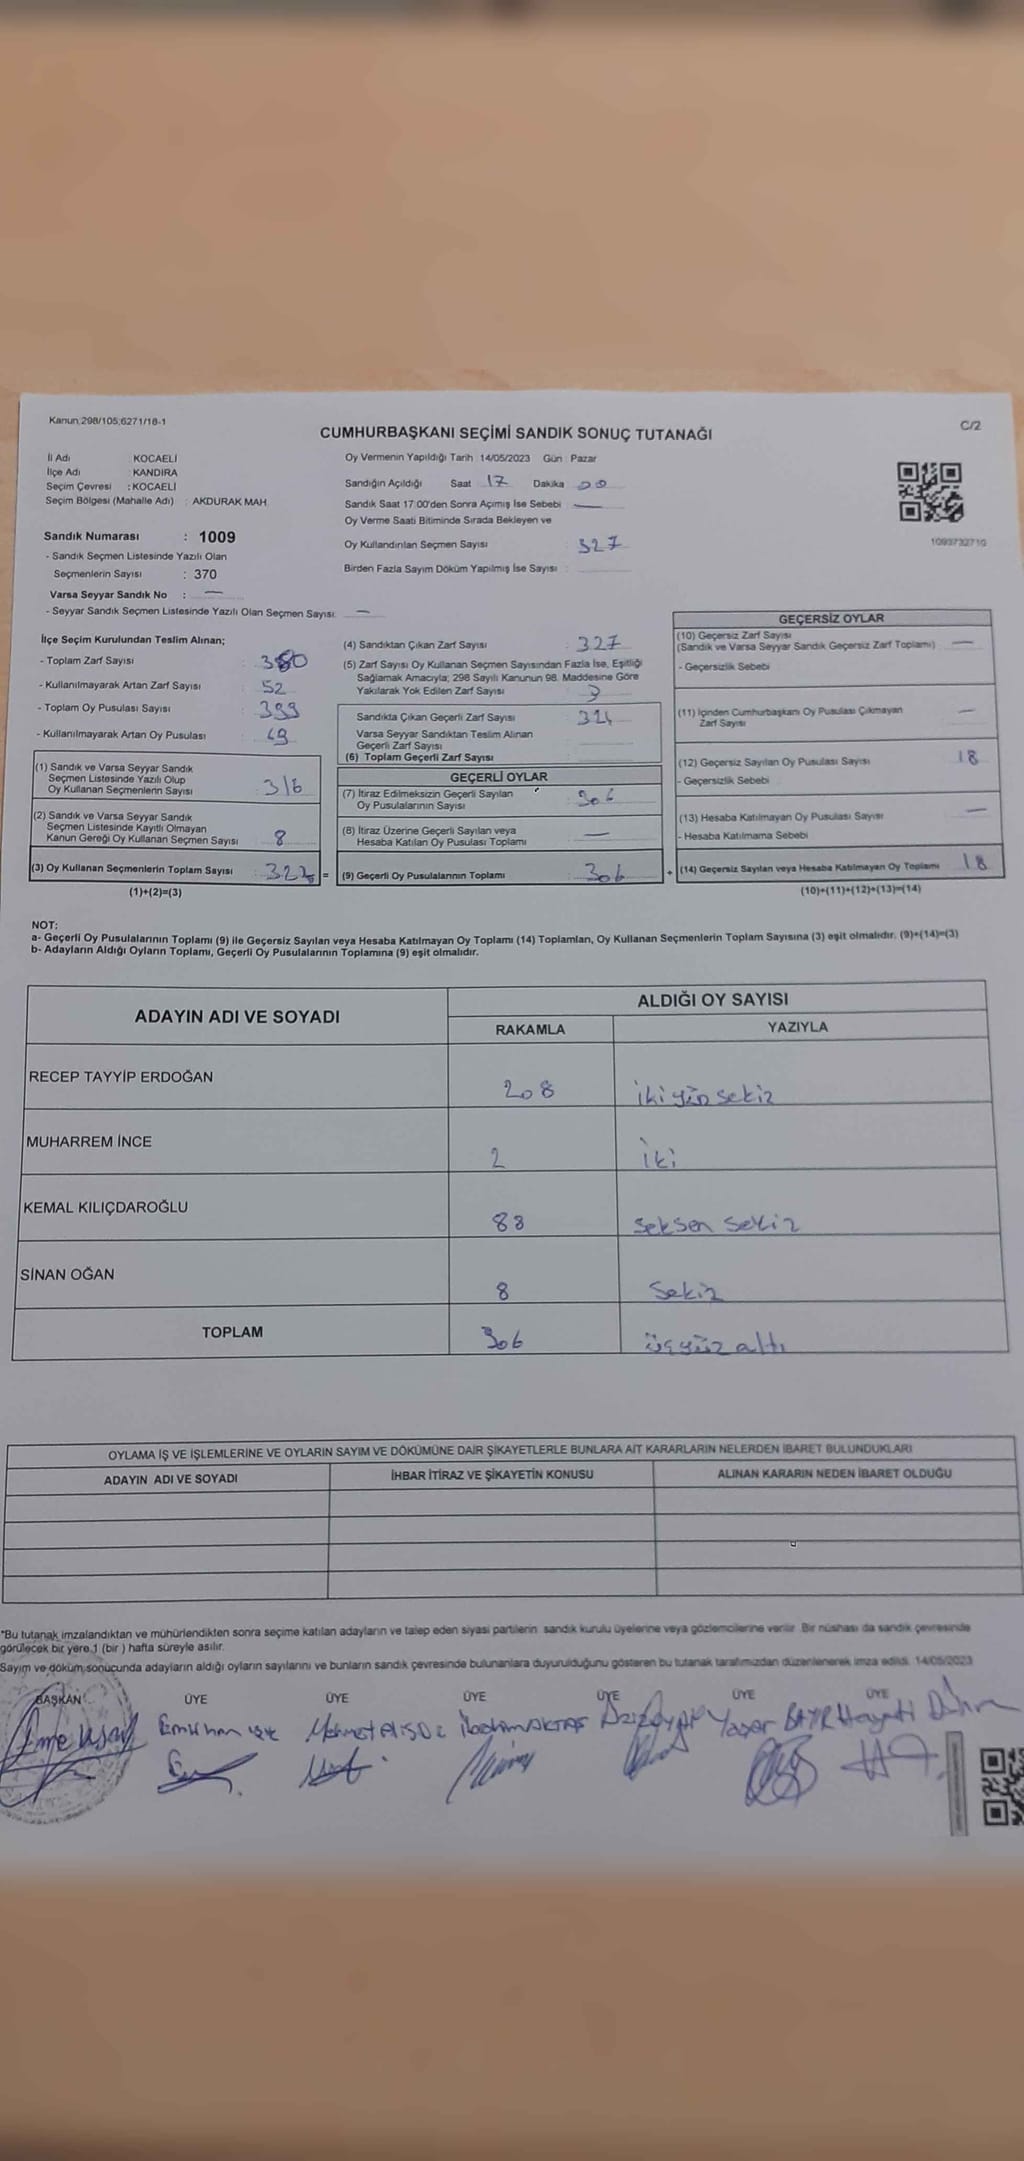 Kanun:298/105;6271/18-1
C/2
CUMHURBAŞKANI SEÇİMİ SANDIK SONUÇ TUTANAĞI
İl Adı KOCAELİ
İlçe Adı : KANDIRA
Seçim Çevresi : KOCAELİ
Seçim Bölgesi (Mahalle Adı) : AKDURAK MAH.
Sandık Numarası : 1009
- Sandık Seçmen Listesinde Yazılı Olan
Seçmenlerin Sayısı : 370
Varsa Seyyar Sandık No : —
- Seyyar Sandık Seçmen Listesinde Yazılı Olan Seçmen Sayısı: —
Oy Vermenin Yapıldığı Tarih :14/05/2023 Gün : Pazar
Sandığın Açıldığı Saat 17 Dakika 00
Sandık Saat 17:00'den Sonra Açımış İse Sebebi —
Oy Verme Saati Bitiminde Sırada Bekleyen ve
Oy Kullandırılan Seçmen Sayısı : 327
Birden Fazla Sayım Döküm Yapılmış İse Sayısı :
1093732710
İlçe Seçim Kurulundan Teslim Alınan;
- Toplam Zarf Sayısı : 380
- Kullanılmayarak Artan Zarf Sayısı : 52
- Toplam Oy Pusulası Sayısı : 399
- Kullanılmayarak Artan Oy Pusulası : 69
(1) Sandık ve Varsa Seyyar Sandık
Seçmen Listesinde Yazılı Olup
Oy Kullanan Seçmenlerin Sayısı : 316
(2) Sandık ve Varsa Seyyar Sandık
Seçmen Listesinde Kayıtlı Olmayan
Kanun Gereği Oy Kullanan Seçmen Sayısı : 8
(3) Oy Kullanan Seçmenlerin Toplam Sayısı :
(1)+(2)=(3)
(4) Sandıktan Çıkan Zarf Sayısı : 327
(5) Zarf Sayısı Oy Kullanan Seçmen Sayısından Fazla İse, Eşitliği
Sağlamak Amacıyla; 298 Sayılı Kanunun 98. Maddesine Göre
Yakılarak Yok Edilen Zarf Sayısı : 3
Sandıkta Çıkan Geçerli Zarf Sayısı : 324
Varsa Seyyar Sandıktan Teslim Alınan
Geçerli Zarf Sayısı :
(6) Toplam Geçerli Zarf Sayısı :
GEÇERLİ OYLAR
(7) İtiraz Edilmeksizin Geçerli Sayılan
Oy Pusulalarının Sayısı : 306
(8) İtiraz Üzerine Geçerli Sayılan veya
Hesaba Katılan Oy Pusulası Toplamı : —
= (9) Geçerli Oy Pusulalarının Toplamı : 306
GEÇERSİZ OYLAR
(10) Geçersiz Zarf Sayısı
(Sandık ve Varsa Seyyar Sandık Geçersiz Zarf Toplamı) : —
- Geçersizlik Sebebi
(11) İçinden Cumhurbaşkanı Oy Pusulası Çıkmayan
Zarf Sayısı : —
(12) Geçersiz Sayılan Oy Pusulası Sayısı : 18
- Geçersizlik Sebebi
(13) Hesaba Katılmayan Oy Pusulası Sayısı : —
- Hesaba Katılmama Sebebi
+ (14) Geçersiz Sayılan veya Hesaba Katılmayan Oy Toplamı : 18
(10)+(11)+(12)+(13)=(14)
NOT:
a- Geçerli Oy Pusulalarının Toplamı (9) ile Geçersiz Sayılan veya Hesaba Katılmayan Oy Toplamı (14) Toplamları, Oy Kullanan Seçmenlerin Toplam Sayısına (3) eşit olmalıdır. (9)+(14)=(3)
b- Adayların Aldığı Oyların Toplamı, Geçerli Oy Pusulalarının Toplamına (9) eşit olmalıdır.
ADAYIN ADI VE SOYADI
ALDIĞI OY SAYISI
RAKAMLA YAZIYLA
RECEP TAYYİP ERDOĞAN 208 iki yüz sekiz
MUHARREM İNCE 2 iki
KEMAL KILIÇDAROĞLU 88 seksen sekiz
SİNAN OĞAN 8 Sekiz
TOPLAM 306 üçyüz altı
OYLAMA İŞ VE İŞLEMLERİNE VE OYLARIN SAYIM VE DÖKÜMÜNE DAİR ŞİKAYETLERLE BUNLARA AİT KARARLARIN NELERDEN İBARET BULUNDUKLARI
ADAYIN ADI VE SOYADI İHBAR İTİRAZ VE ŞİKAYETİN KONUSU ALINAN KARARIN NEDEN İBARET OLDUĞU
*Bu tutanak imzalandıktan ve mühürlendikten sonra seçime katılan adayların ve talep eden siyasi partilerin sandık kurulu üyelerine veya gözlemcilerine verilir. Bir nüshası da sandık çevresinde
görülecek bir yere 1 (bir ) hafta süreyle asılır.
Sayım ve döküm sonucunda adayların aldığı oyların sayılarını ve bunların sandık çevresinde bulunanlara duyurulduğunu gösteren bu tutanak tarafımızdan düzenlenerek imza edildi. 14/05/2023
BAŞKAN ÜYE ÜYE ÜYE ÜYE ÜYE ÜYE
İbrahim AKTAŞ Yaşar Hayati